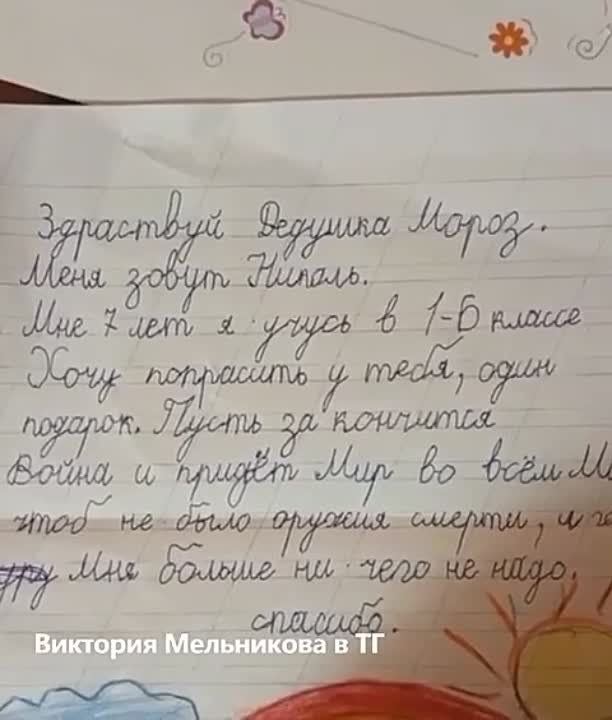 Здраствуй Дедушка Мороз.
Меня зовут Николь.
Мне 7 лет я учусь в 1-Б классе
Хочу попрасить у тебя, один
подарок. Пусть за кончится
Война и придёт Мир во всём
чтоб не было оружия смерти, и
Мня больше ни чего не надо.
спасибо.
Виктория Мельникова в ТГ